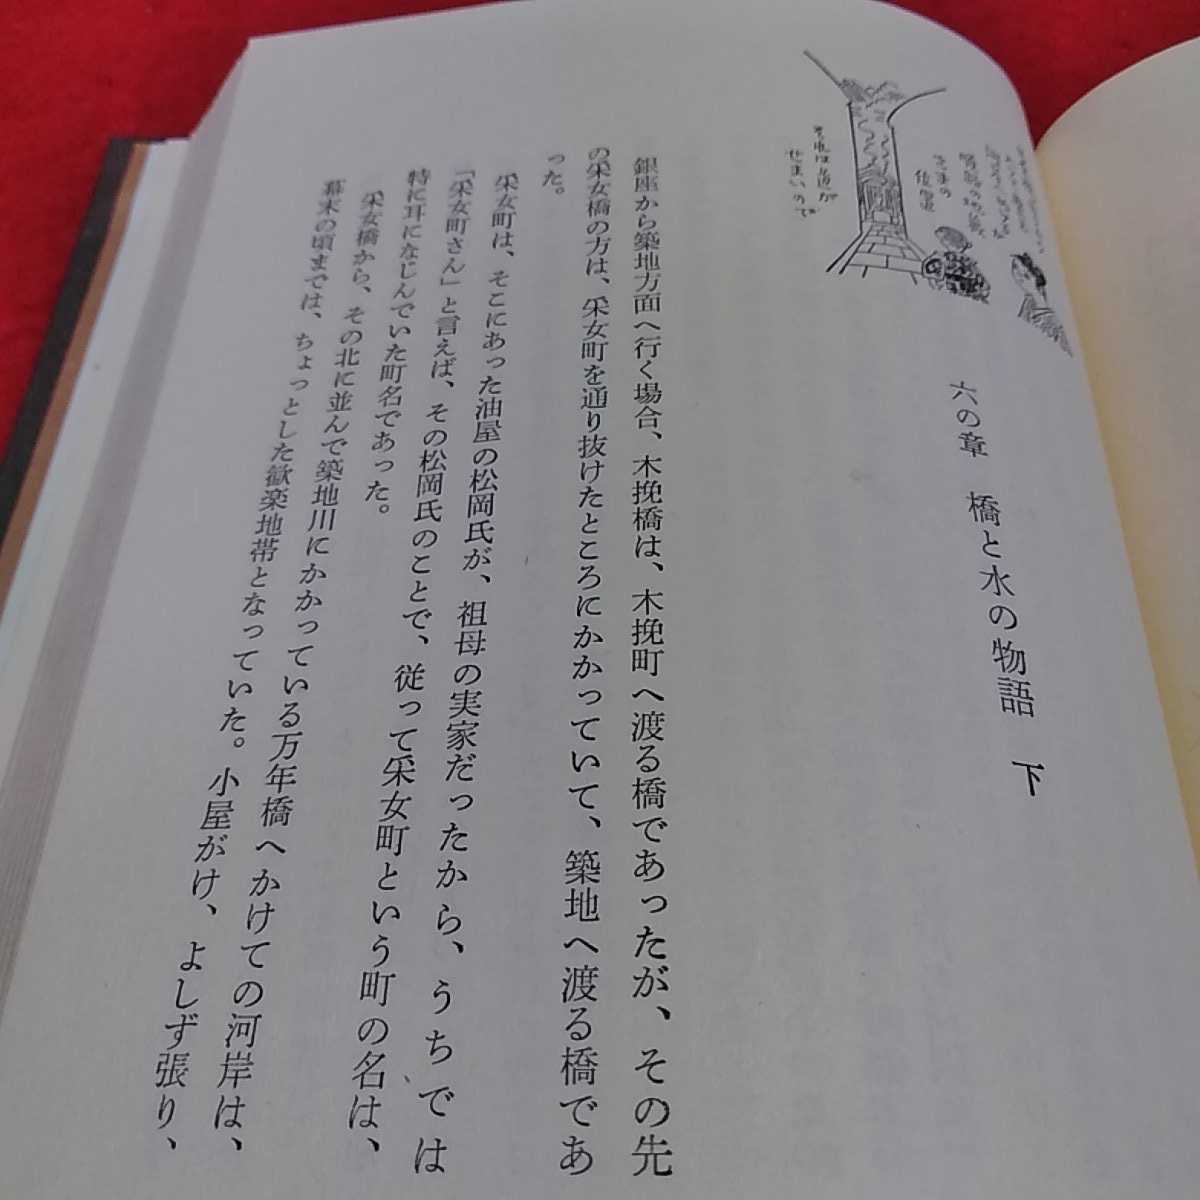 六の章　橋と水の物語　下
銀座から築地方面へ行く場合、木挽橋は、木挽町へ渡る橋であったが、その先
の采女橋の方は、采女町を通り抜けたところにかかっていて、築地へ渡る橋であ
った。
采女町は、そこにあった油屋の松岡氏が、祖母の実家だったから、うちでは
「采女町さん」と言えば、その松岡氏のことで、従って采女町という町の名は、
特に耳になじんでいた町名であった。
采女橋から、その北に並んで築地川にかかっている万年橋へかけての河岸は、
幕末の頃までは、ちょっとした歓楽地帯となっていた。小屋がけ、よしず張り、
それは道が
せまいので